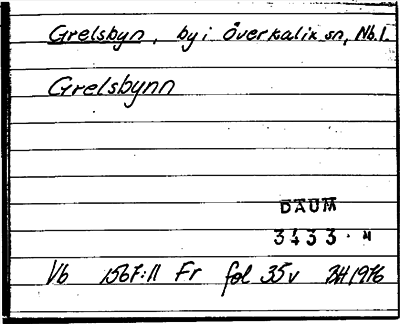 Grelsbyn, by i Överkalix sn, Nb. l.
Grelsbynn
DAUM
3433.
Vb 1567:11 Fr fol 35v 1976